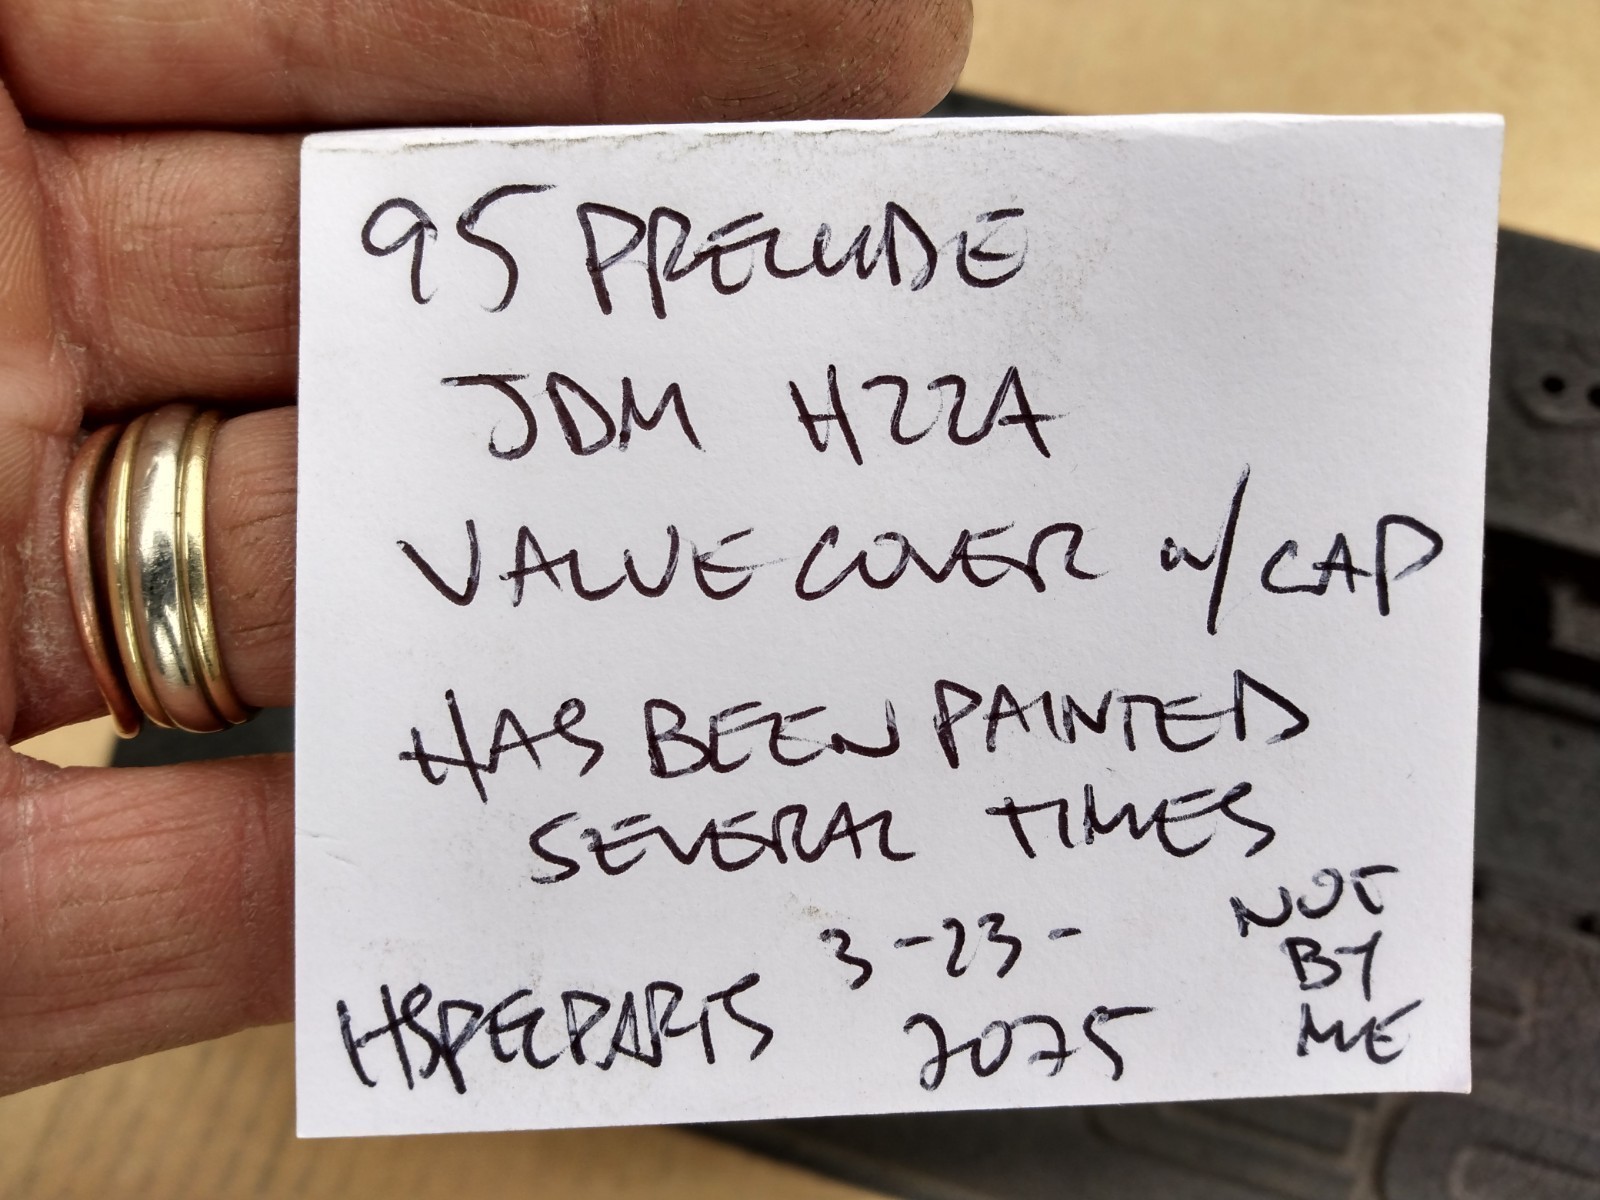 95 PRELUDE
JDM H22A
VALVE COVER w/ CAP
HAS BEEN PAINTED
SEVERAL TIMES
NOT
BY
ME
3-23-
2025
HSPECPARTS